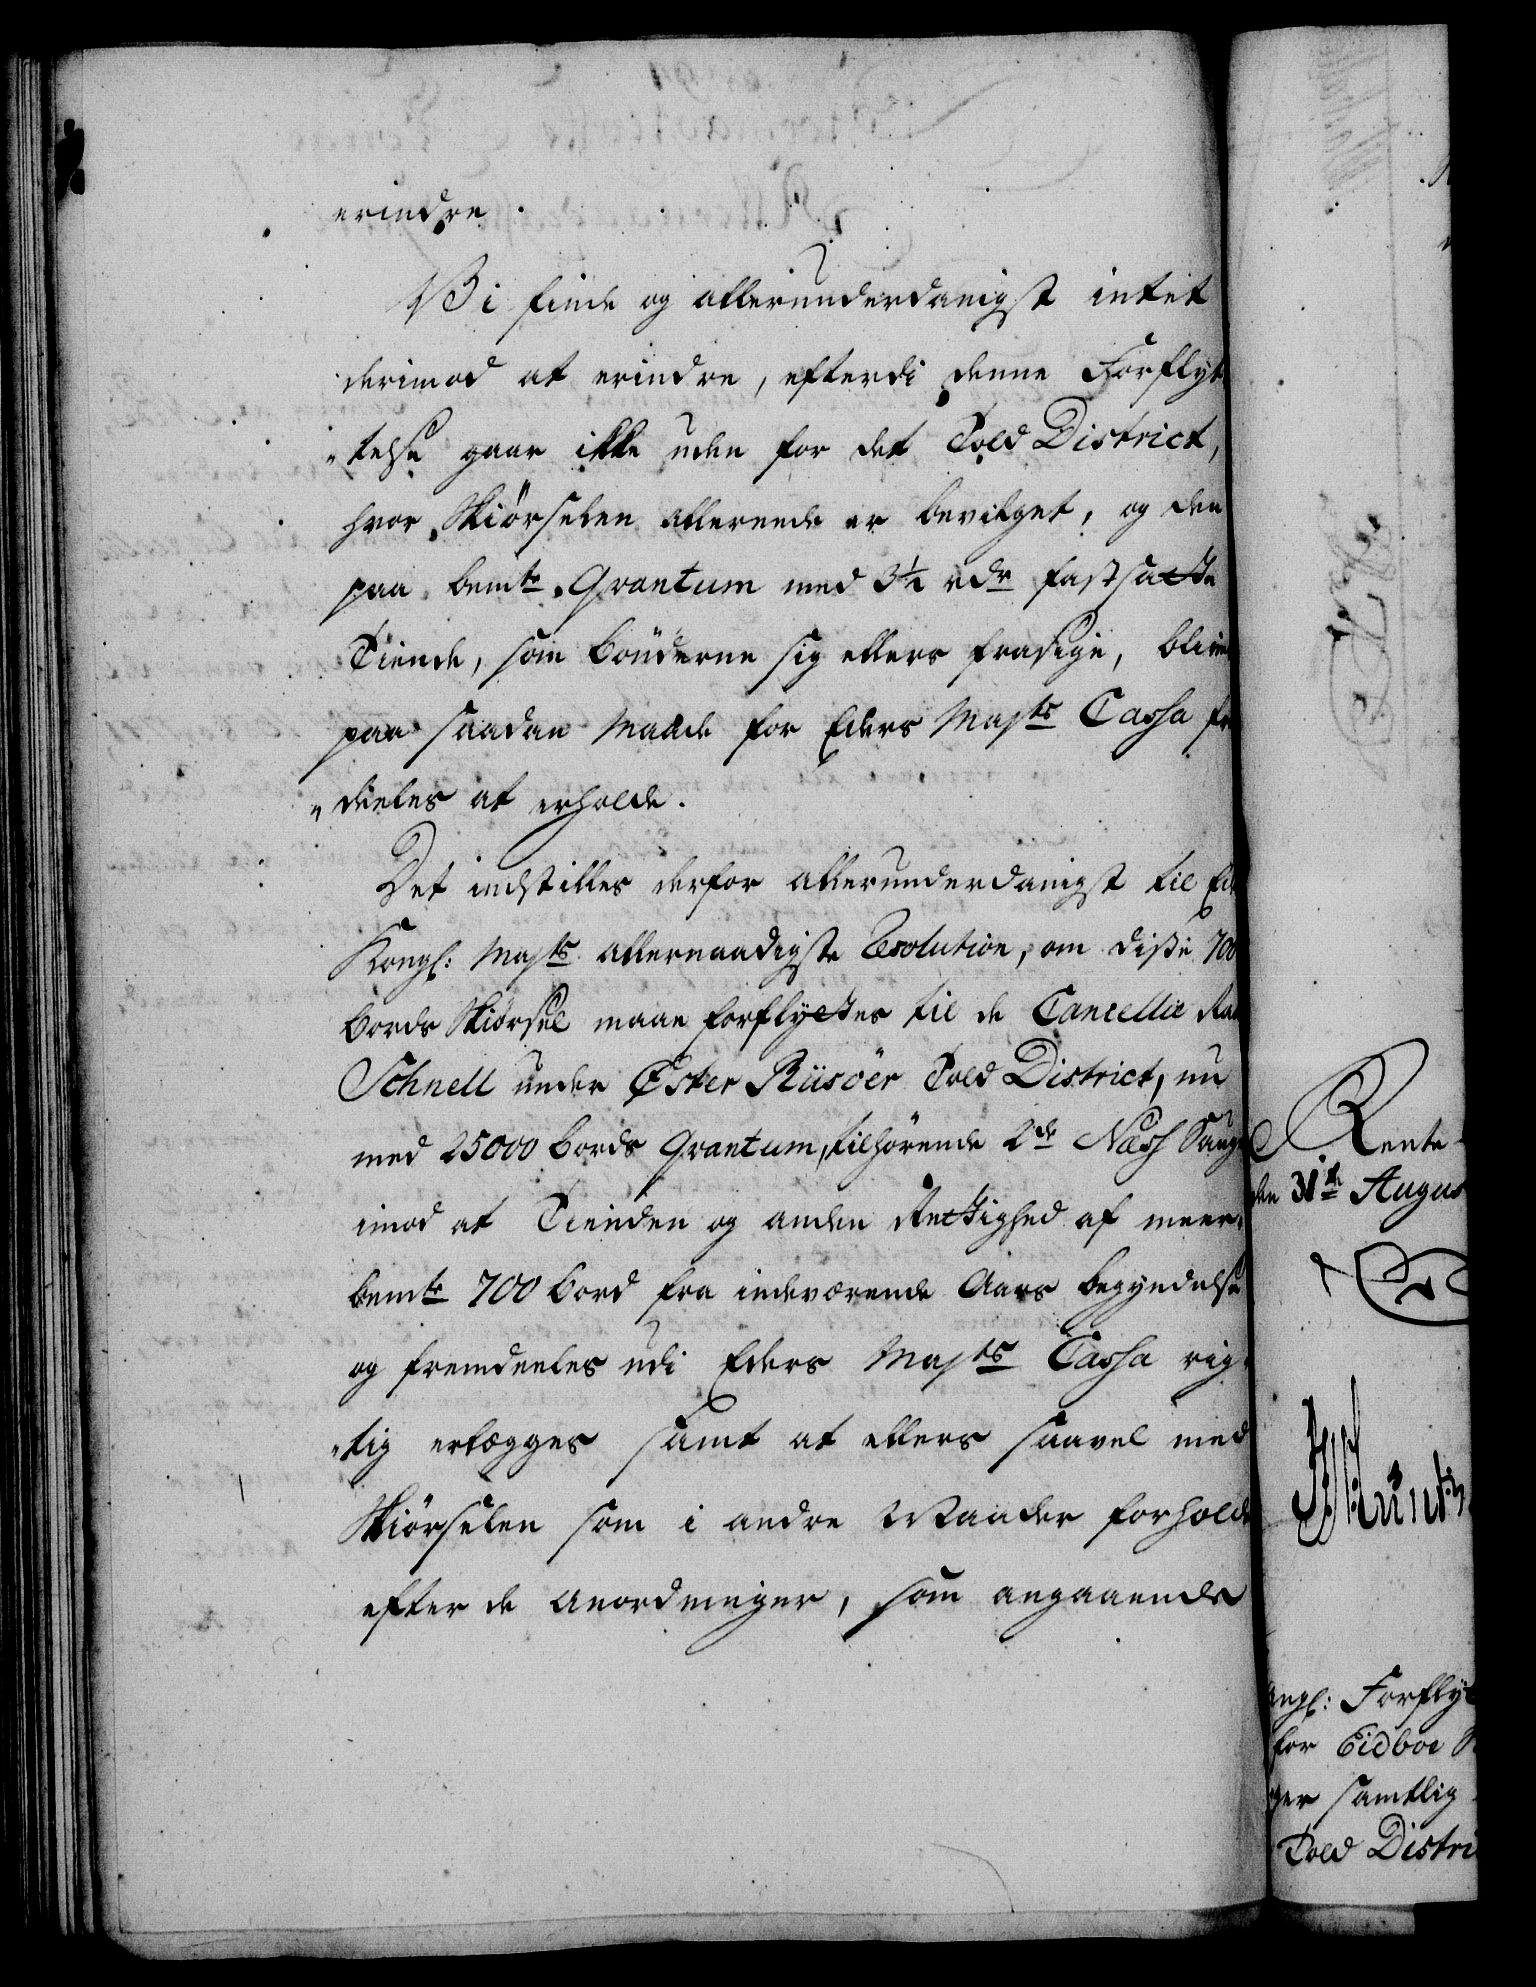 erindre.
Vi finde og allerunderdanigst intet
derimod at erindre, efterdi denne Forflyt-
telse gaar ikke uden for det Told District,
hvor Skiørselen allerede er bevilget, og den
paa bemte Qvantum med 3½ rdr fastsatte
Tiende, som bønderne sig ellers frasige, blive
paa saadan Maade for Eders Mayts Cassa fr
deeles at erholde.
Det indstilles derfor allerunderdanigst til Ed
Kongl: Mayts allernaadigste Resolution, om disse 700
bords Skiørsel maae forflyttes til de Cancellie Raa
Schnell under Øster Riisöer Told District, nu
med 25000 bords Qvantum, tilhørende 2de Næss Saug
imod at Tienden og anden Rettighed af meer-
bemte 700 bord fra indeværende Aars begyndelse
og fremdeeles udi Eders Mayts Cassa rig-
tig erlægges samt at ellers saavel med
Skiørselen som i andre Maader forholde
efter de anordninger, som angaaende
Rente
den 31te Augus
angl: Forflyt
for Eidboe
ger samtlig
Told Distri